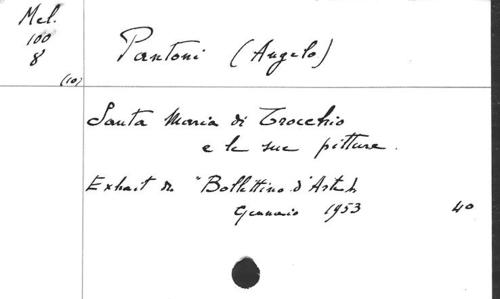 Mel.
100
8
(10)
Pantoni (Angelo)
Santa Maria di Trocchio
e le sue pitture.
Extrait du "Bollettino d'Arte",
Gennaio 1953 40